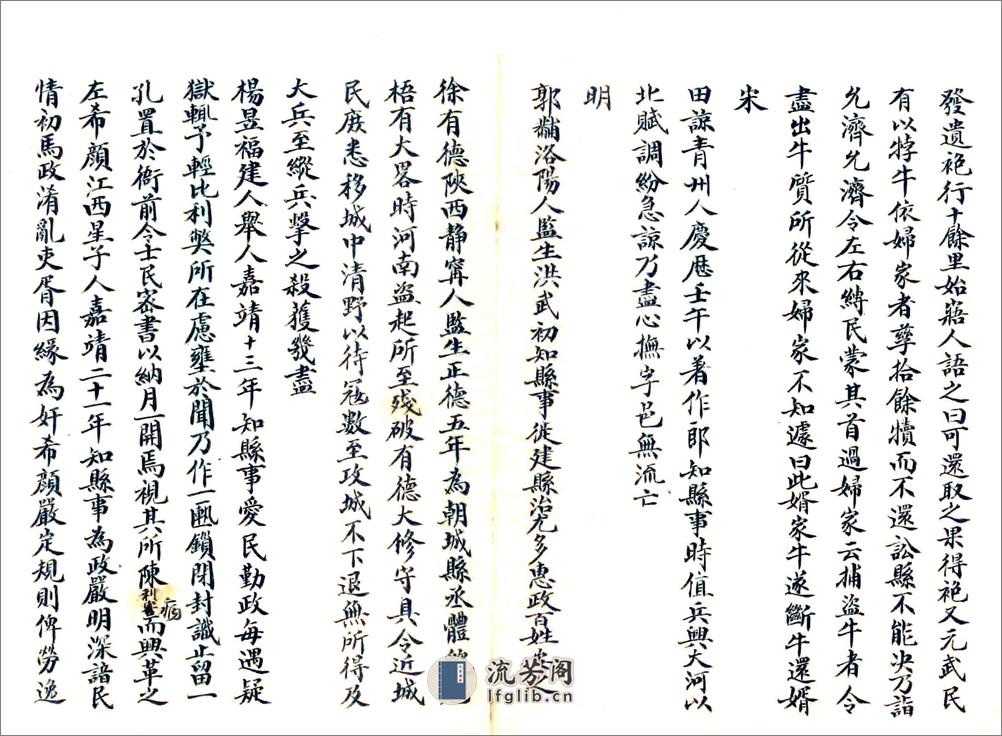 發遺袍行十餘里始寤人語之曰可還取之果得袍又元武民
有以牸牛依婦家者孳拾餘犢而不還訟縣不能決乃詣
允濟允濟令左右縛民蒙其首過婦家云捕盜牛者令
盡出牛質所從來婦家不知遽曰此婿家牛遂斷牛還婿
宋
田諒青州人慶厯壬午以著作郎知縣事時值兵興大河以
北賦調紛急諒乃盡心撫字邑無流亡
明
郭黼洛陽人監生洪武初知縣事徙建縣治尤多惠政百姓
徐有德陝西静寗人監生正德五年為朝城縣丞體
梧有大畧時河南盜起所至殘破有德大修守具令近城
民庶悉移城中清野以待寇數至攻城不下退無所得及
大兵至縱兵擊之殺獲幾盡
楊昱福建人舉人嘉靖十三年知縣事愛民勤政每遇疑
獄輒予輕比利獘所在慮壅於聞乃作一匭鎖閉封識止留一
孔置於衙前令士民密書以納月一開焉視其所陳利病而興革之
左希顏江西星子人嘉靖二十一年知縣事為政嚴明深諳民
情初馬政淆亂吏胥因緣為奸希顏嚴定規則俾勞逸
流芳阁
lfglib.cn